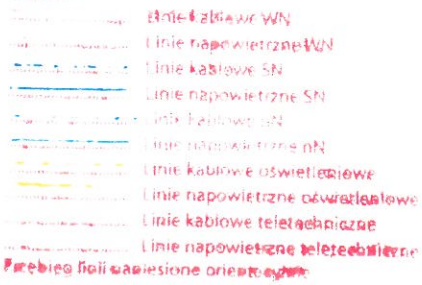 Linie kablowe WN
Linie napowietrzne WN
Linie kablowe SN
Linie napowietrzne SN
Linie kablowe nN
Linie napowietrzne nN
Linie kablowe oświetleniowe
Linie napowietrzne oświetleniowe
Linie kablowe teletechniczne
Linie napowietrzne teletechniczne
Przebieg linii naniesiono orientacyjnie